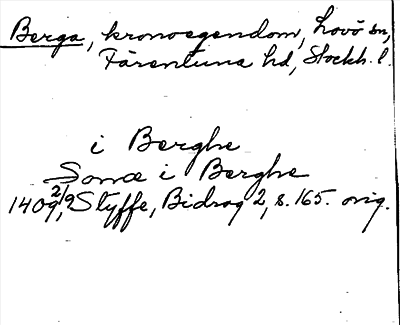 Berga, kronoegendom, Lovö sn,
Färentuna hd, Stockh. l.
i Berghe
Sonæ i Berghe
1409 2/9, Styffe, Bidrag 2, s. 165. orig.